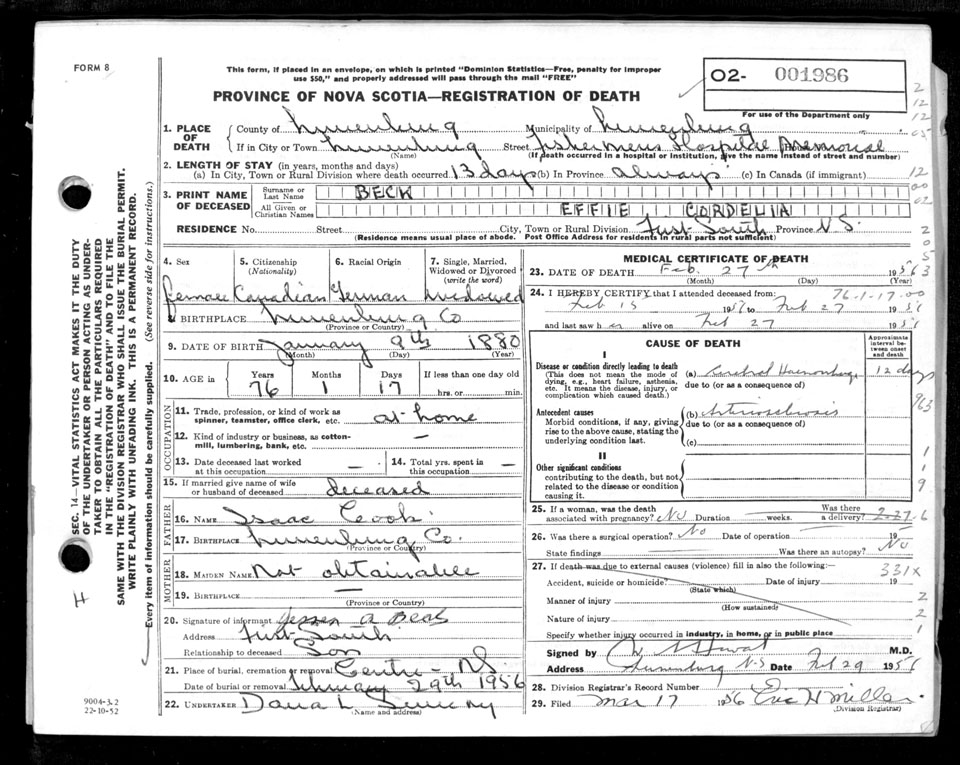 FORM 8
This form, if placed in an envelope, on which is printed "Dominion Statistics—Free, penalty for improper
use $50," and properly addressed will pass through the mail "FREE"
O2- 001986
For use of the Department only
PROVINCE OF NOVA SCOTIA—REGISTRATION OF DEATH
1. PLACE OF DEATH
County of Lunenburg Municipality of Lunenburg
If in City or Town Lunenburg Street Fishermens Hospital Memorial
(Name) (If death occurred in a hospital or institution, give the name instead of street and number)
2. LENGTH OF STAY (in years, months and days)
(a) In City, Town or Rural Division where death occurred 13 days (b) In Province always (c) In Canada (if immigrant)
3. PRINT NAME OF DECEASED
Surname or Last Name BECK
All Given or Christian Names EFFIE CORDELIA
RESIDENCE No. Street City, Town or Rural Division First South Province N S.
(Residence means usual place of abode. Post Office Address for residents in rural parts not sufficient)
4. Sex
female
5. Citizenship (Nationality)
Canadian
6. Racial Origin
German
7. Single, Married, Widowed or Divorced (write the word)
Widowed
8 BIRTHPLACE Lunenburg Co
(Province or Country)
9. DATE OF BIRTH January 9th 1880
(Month) (Day) (Year)
10. AGE in Years Months Days If less than one day old
76 1 17 hrs. or min.
OCCUPATION
11. Trade, profession, or kind of work as spinner, teamster, office clerk, etc. at home
12. Kind of industry or business, as cotton-mill, lumbering, bank, etc. —
13. Date deceased last worked at this occupation —
14. Total yrs. spent in this occupation —
15. If married give name of wife or husband of deceased deceased
FATHER
16. NAME Isaac Cook
17. BIRTHPLACE Lunenburg Co.
(Province or Country)
MOTHER
18. MAIDEN NAME Not obtainable
19. BIRTHPLACE —
(Province or Country)
20. Signature of informant A Beck
Address First South
Relationship to deceased Son
21. Place of burial, cremation or removal Centre N.S.
Date of burial or removal February 29th 1956
22. UNDERTAKER Dana L Sweeny
(Name and address)
MEDICAL CERTIFICATE OF DEATH
23. DATE OF DEATH Feb. 27th 1956
(Month) (Day) (Year)
24. I HEREBY CERTIFY that I attended deceased from: 76-1-17.00
Feb 15 1956 to Feb 27 1956
and last saw her alive on Feb 27 1956
CAUSE OF DEATH
Approximate interval between onset and death
I
Disease or condition directly leading to death
(This does not mean the mode of dying, e.g., heart failure, asthenia, etc. It means the disease, injury, or complication which caused death.)
(a) Cerebral Haemorrhage 12 days
due to (or as a consequence of)
Antecedent causes
Morbid conditions, if any, giving rise to the above cause, stating the underlying condition last.
(b) Arteriosclerosis
due to (or as a consequence of)
(c)
II
Other significant conditions
contributing to the death, but not related to the disease or condition causing it.
25. If a woman, was the death associated with pregnancy? No Duration weeks. Was there a delivery? 2-27-6
26. Was there a surgical operation? No Date of operation 19
State findings Was there an autopsy? No
27. If death was due to external causes (violence) fill in also the following:— 331X
Accident, suicide or homicide? Date of injury 19
(State which)
Manner of injury
(How sustained)
Nature of injury
Specify whether injury occurred in industry, in home, or in public place
Signed by M.D.
Address Lunenburg N.S Date Feb 29 1956
28. Division Registrar's Record Number
29. Filed Mar 17 1956
(Division Registrar)
SEC. 14—VITAL STATISTICS ACT MAKES IT THE DUTY
OF THE UNDERTAKER OR PERSON ACTING AS UNDER-
TAKER TO OBTAIN ALL THE PARTICULARS REQUIRED
IN THE "REGISTRATION OF DEATH" AND TO FILE THE
SAME WITH THE DIVISION REGISTRAR WHO SHALL ISSUE THE BURIAL PERMIT.
WRITE PLAINLY WITH UNFADING INK. THIS IS A PERMANENT RECORD.
Every item of information should be carefully supplied. (See reverse side for instructions.)
H
9004-3.2
22-10-52